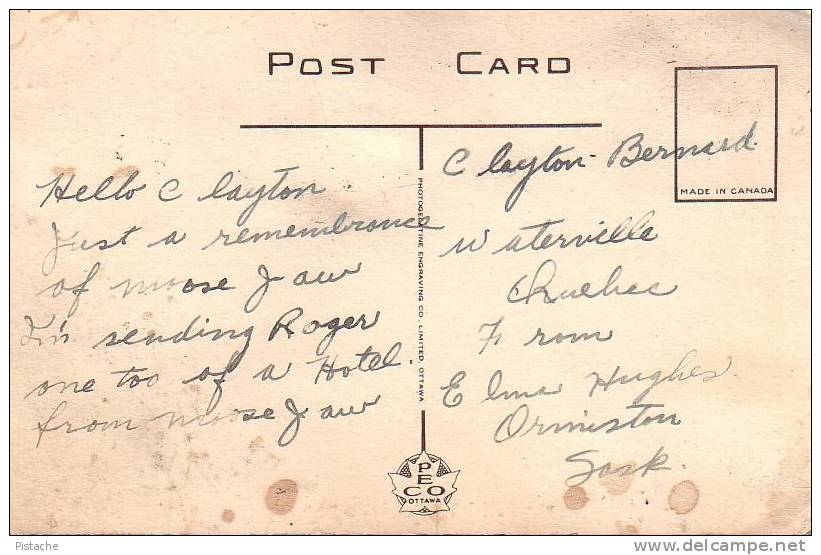 POST CARD
MADE IN CANADA
Hello Clayton.
Just a remembrance
of moose Jaw
I'm sending Roger
one too of a Hotel.
from moose Jaw
PHOTOGELATINE ENGRAVING CO. LIMITED. OTTAWA
PECO
OTTAWA
Clayton Bernard.
Waterville
Quebec
From
Elma Hughes.
Ormiston
Sask.
Pistache
www.delcampe.net